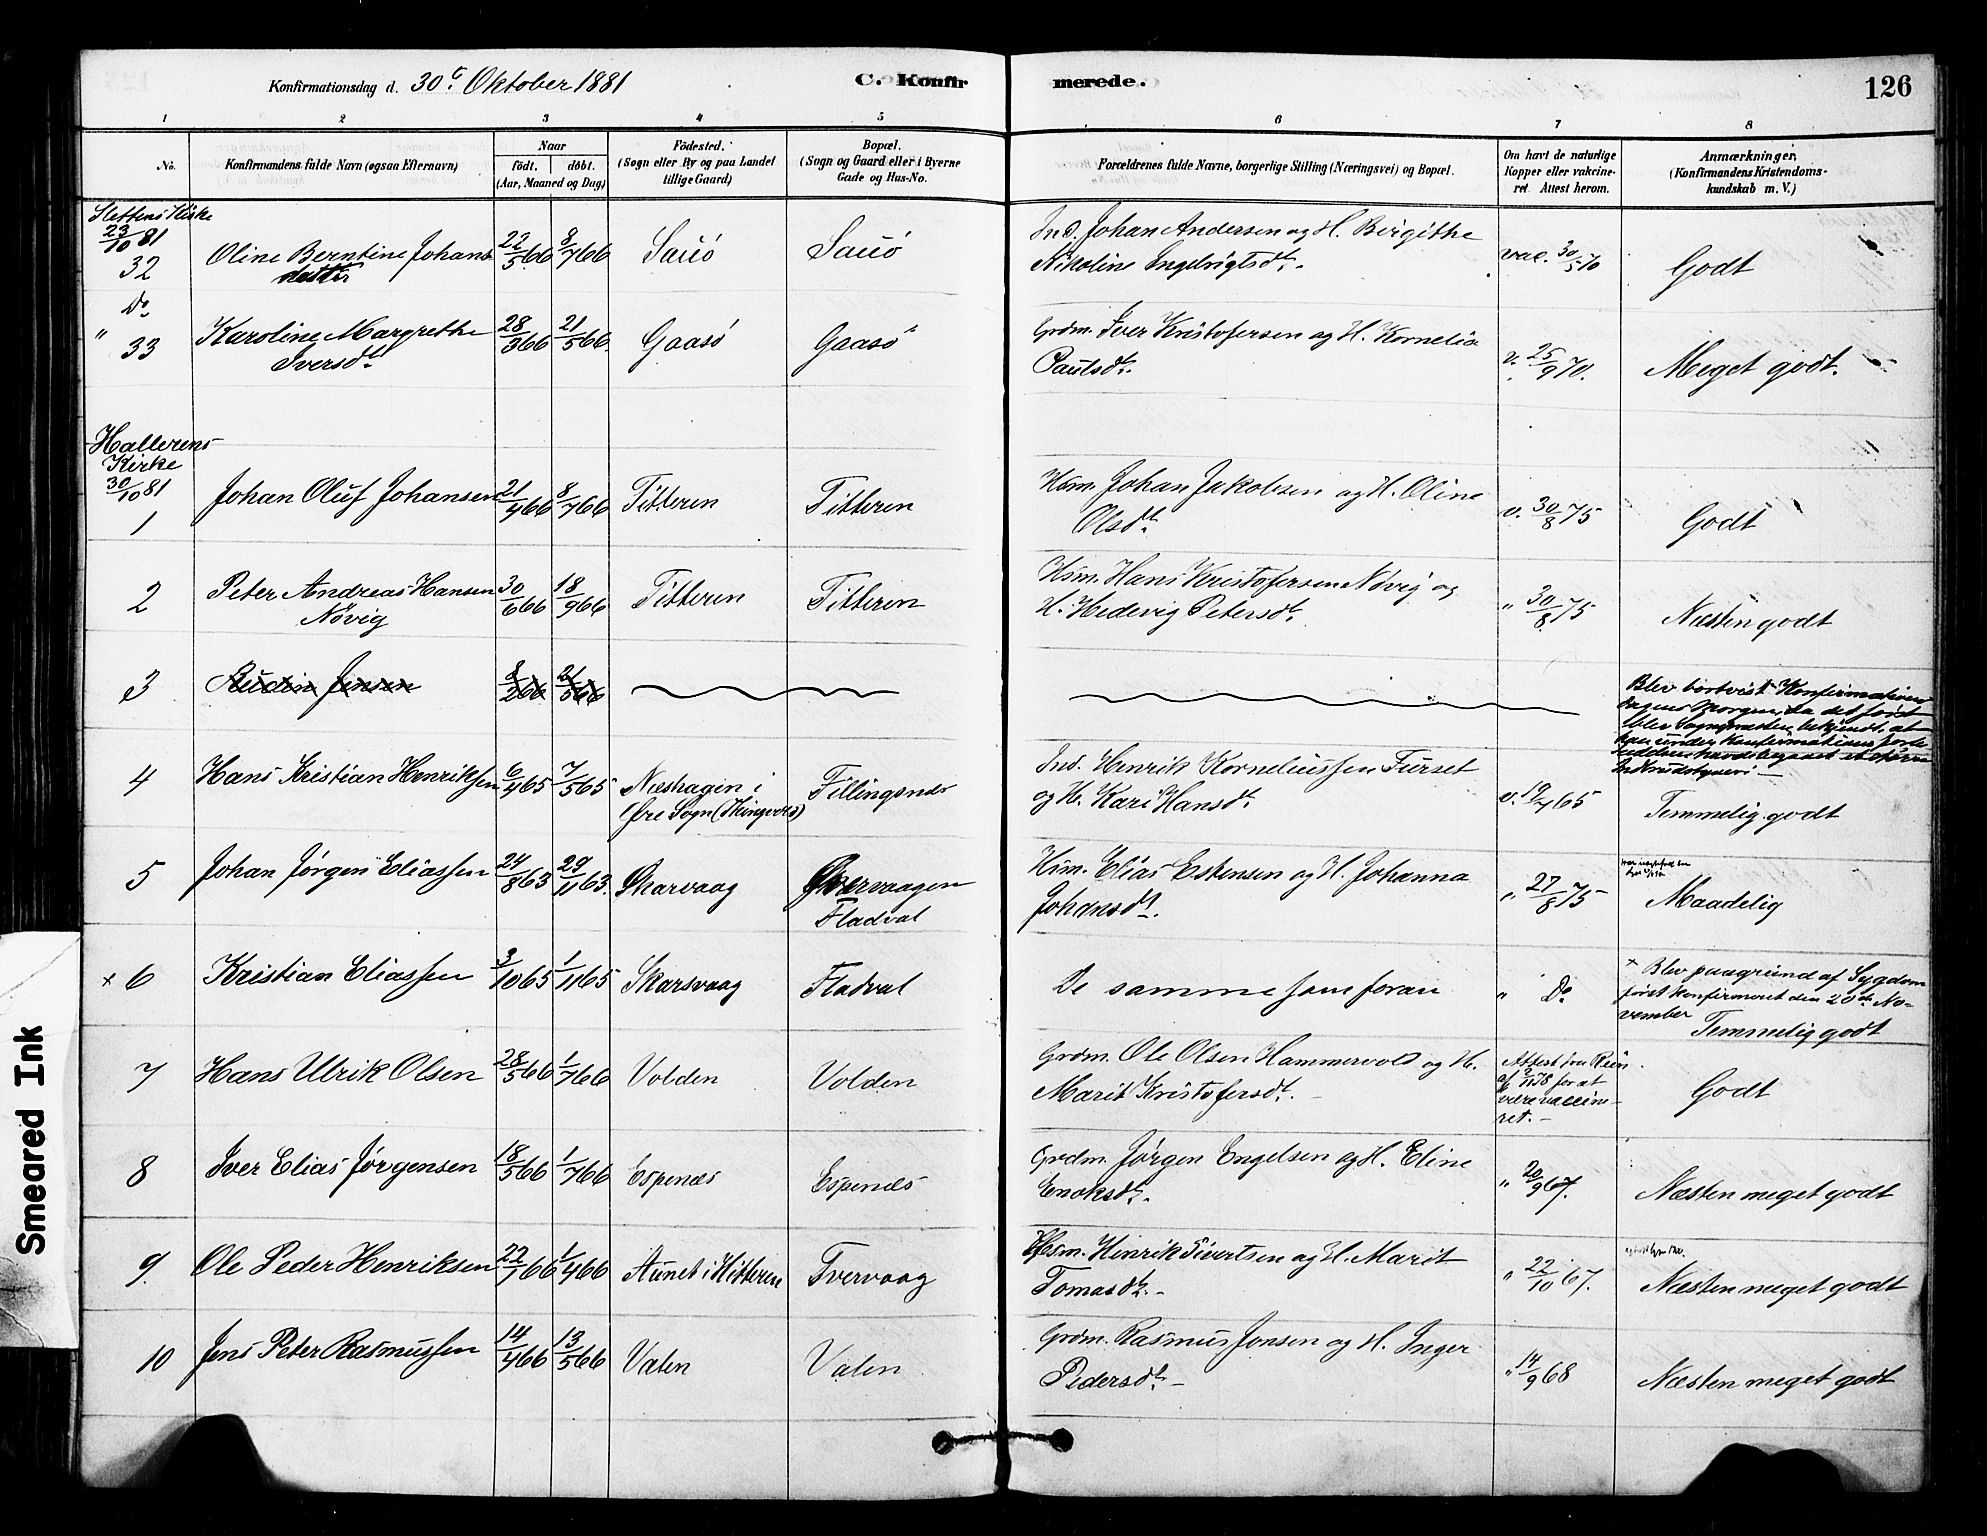 Konfirmationsdag d. 30te Oktober 1881
C. Konfirmerede.
126
1 2 3 4 5 6 7 8
No.
Konfirmandens fulde Navn (ogsaa Efternavn)
Naar
födt. döbt.
(Aar, Maaned og Dag)
Födested.
(Sogn eller By og paa Landet
tillige Gaard)
Bopæl.
(Sogn og Gaard eller i Byerne
Gade og Hus-No.
Forældrenes fulde Navne, borgerlige Stilling (Næringsvei) og Bopæl.
Om havt de naturlige
Kopper eller vakcine-
ret. Attest herom.
Anmærkninger.
(Konfirmandens Kristendoms-
kundskab m. V.)
Slettens Kirke
23/10 81
32 Oline Berntine Johans 22/5 66 8/7 66 Sauö Sauö
datter
Ind. Johan Andersen og H. Birgithe
Nikoline Engebrigtsdt.
vac. 30/5 70 Godt
Do
" 33 Karoline Margrethe 28/3 66 21/5 66. Gaasö Gaasö
Iversdt.
Grdm. Iver Kristofersen og H. Kornelia
Paulsdt.
v. 25/9 70. Meget godt.
Hallerens
Kirke
30/10 81
1 Johan Oluf Johansen 21/4 66 8/7 66 Titteren Titteren
Hsm. Johan Jakobsen og H. Oline
Olsdt.
v. 30/8 75 Godt
2 Peter Andreas Hansen 30/6 66 18/9 66 Titteren Titteren
Növig
Hsm. Hans Kristofersen Növig og
H. Hedevig Petersdt.
" 30/8 75 Næsten godt
3 Jensen
Blev bortvist Konfirmations
dagens Morgen, da det först
blev Sognepræsten bekjendt, at
han under Konfirmationsforbe
4 Hans Kristian Henrikssen 6/4 65 7/5 65 Næshagen i Fillingsnes
Øre Sogn
Ind. Henrik Korneliussen Furset
og H. Kari Hansdt.
v. 19/7 65 Temmelig godt
5 Johan Jørgen Eliassen 24/8 63 29/11 63. Skarvaag
Fladval
Hsm. Elias Estensen og H. Johanna
Johansdt.
" 27/8 75 Maadelig
x 6 Kristian Eliassen 3/10 65 1/11 65 Skarsvaag Fladval
De samme som foran
" Do
x Blev paagrund af Sygdom
först konfirmeret den 20de No-
vember
Temmelig godt
7 Hans Ulrik Olsen 28/5 66 1/7 66 Volden Volden
Grdm. Ole Olsen Hammervold og H.
Marit Kristofersdt. -
Attest fra Rein
af 2/11 78 for at
være vaccine-
ret. -
Godt
8 Iver Elias Jørgensen 18/5 66 1/7 66 Espenæs Espenæs
Grdm. Jørgen Engelsen og H. Eline
Enoksdt.
" 20/9 67. Næsten meget godt
9. Ole Peder Henriksen 22/1 66 1/4 66 Aunet i Hitteren Tvervaag
Hsm. Hinrik Sivertsen og H. Marit
Tomasdt. -
" 22/10 67. Næsten meget godt
10 Jens Peter Rasmussen 14/4 66 13/5 66 Valen Valen
Grdm. Rasmus Jonsen og H. Inger
Pedersdt. -
" 14/9 68 Næsten meget godt
Smeared Ink